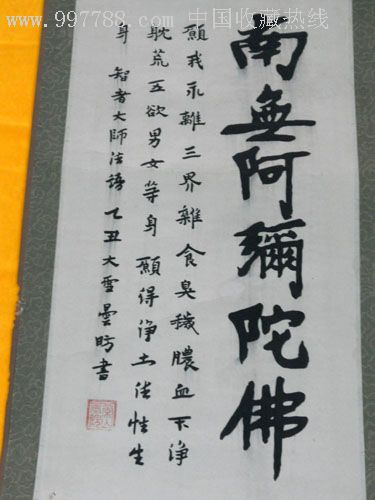 www.997788.com 中国收藏热线
南無阿彌陀佛
願我永離三界雜食臭穢膿血不淨
耽荒五欲男女等身願得淨土法性生
身 智者大師法語 乙丑大雪曇昉書